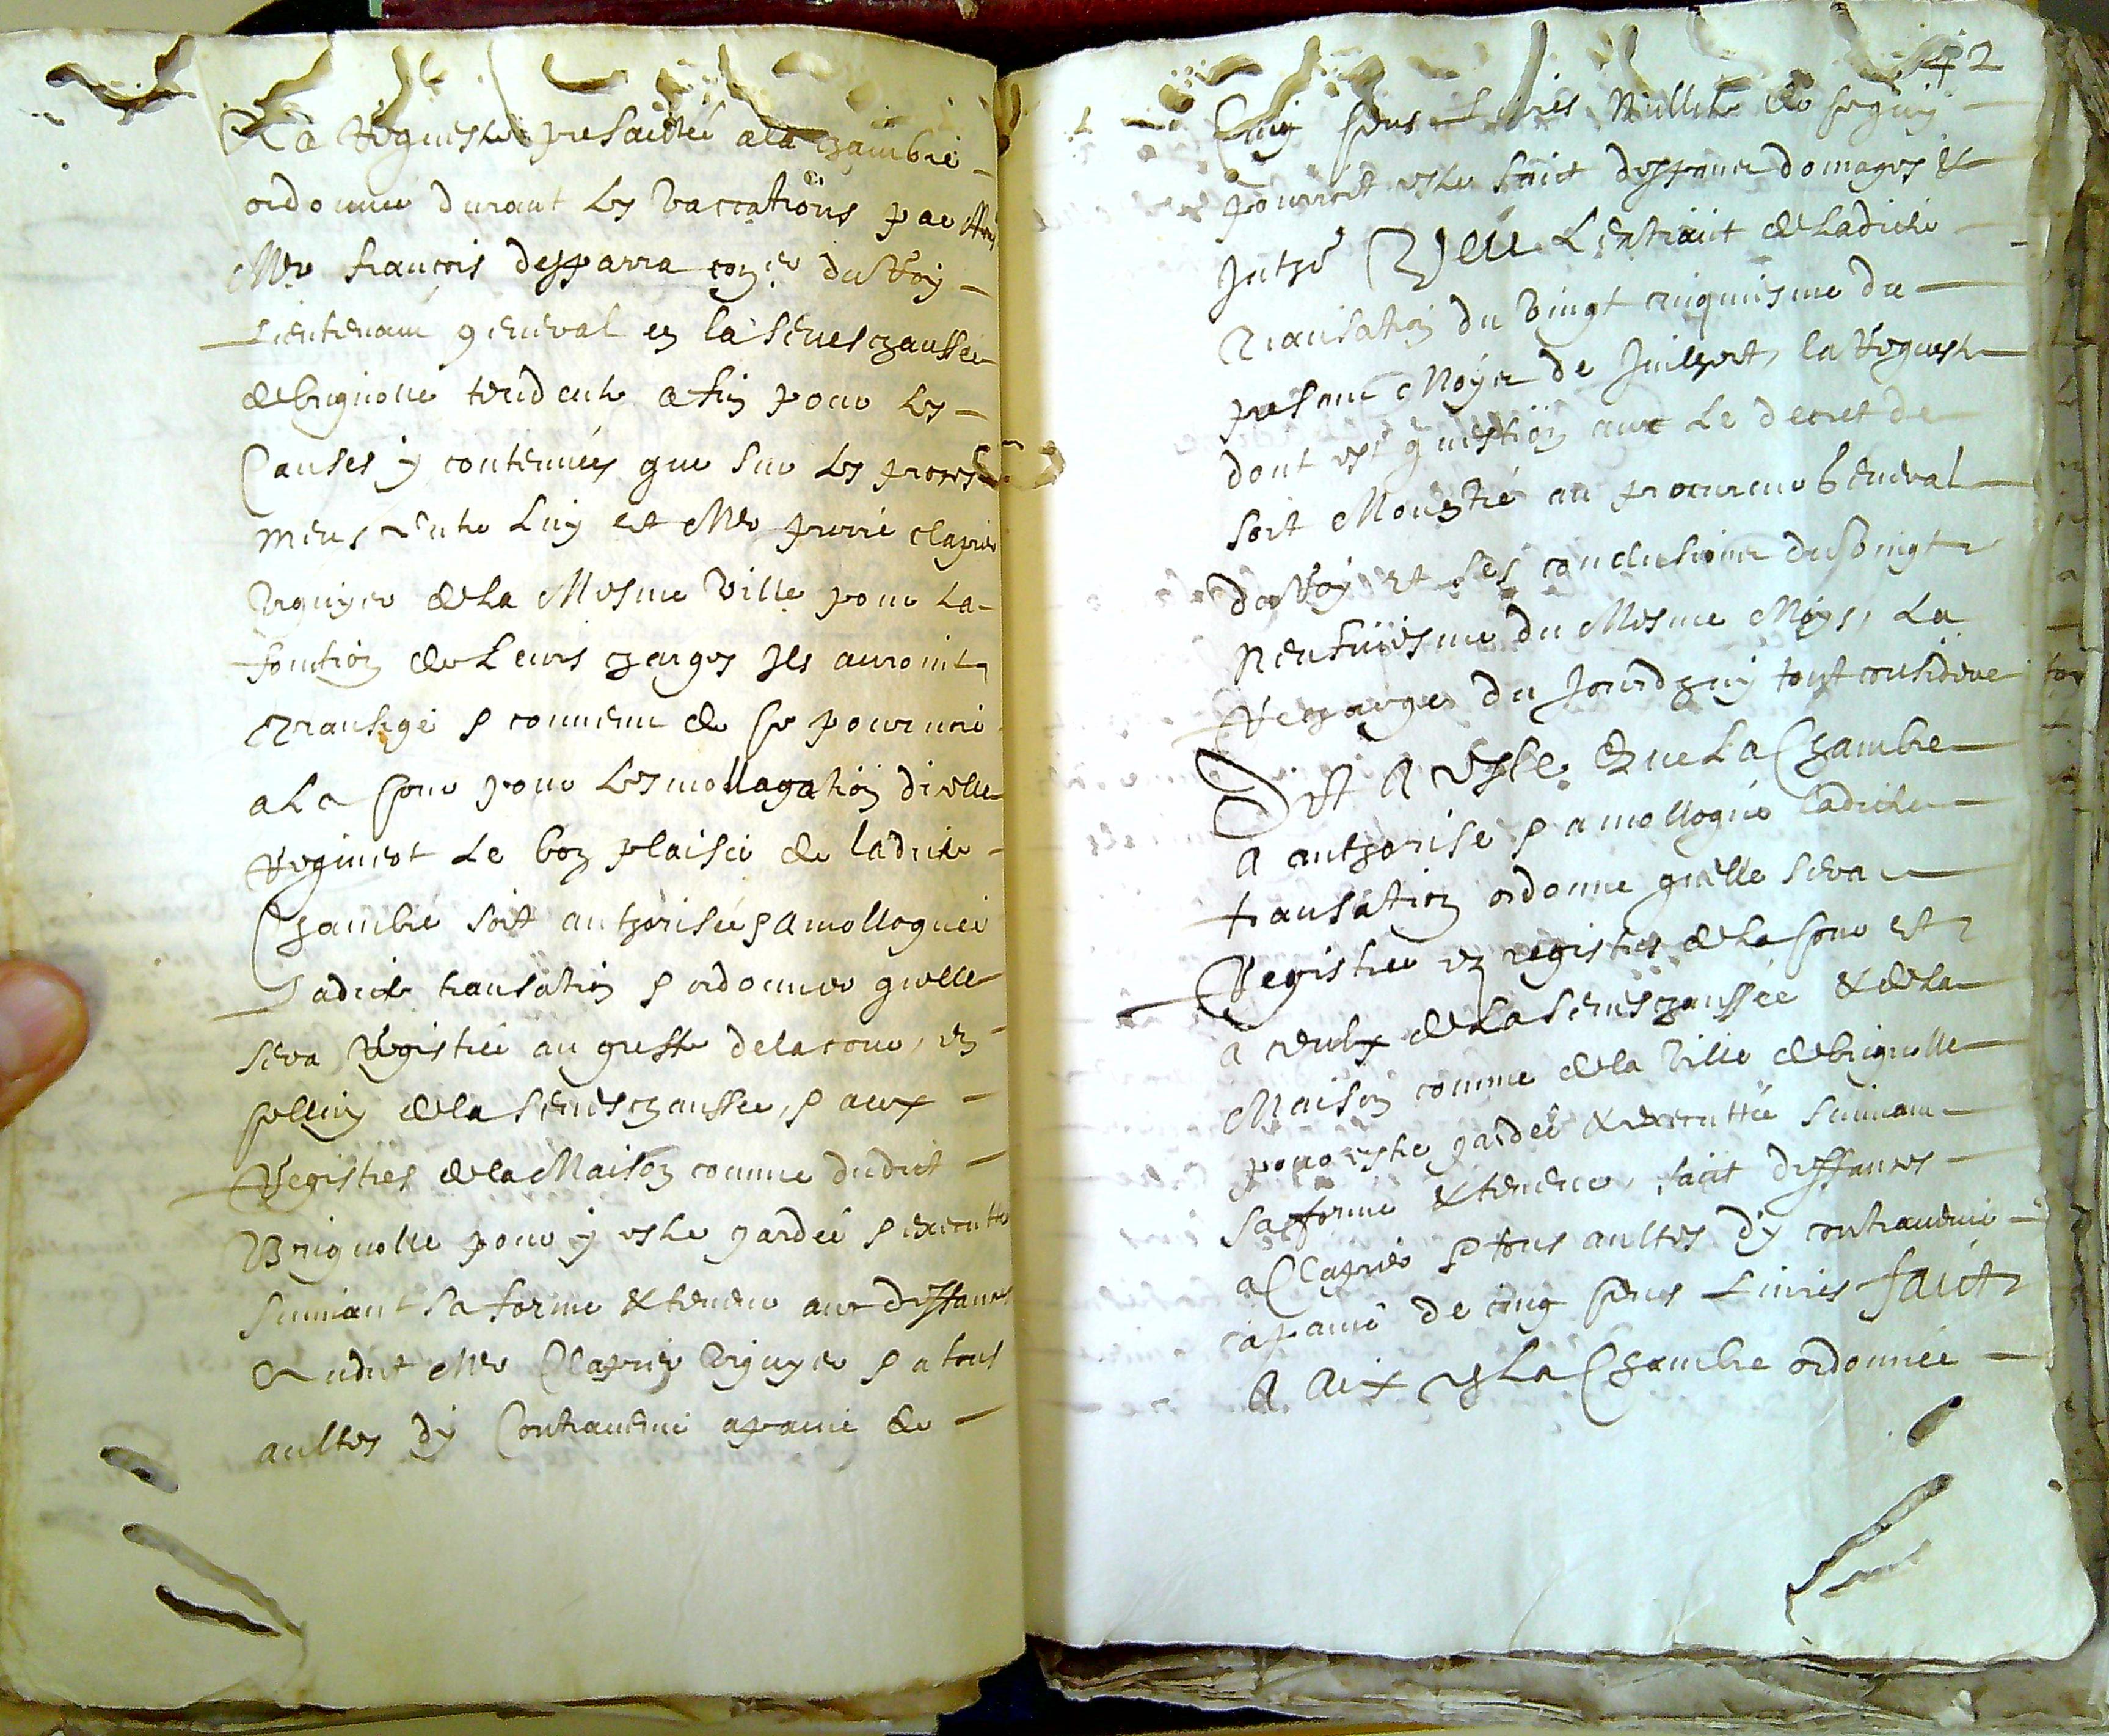 A la Requeste presantée a la chambre
ordonnee durant les vaccations par
Mre françois desparra coner du Roy
Lieutenant general en la seneschaussée
de brignolle tendente a fin pour les
Causes y contenues que sur les proces
meus entre luy et Mre pierre clapier
viguyer de la Mesme ville pour la
fonction de leurs charges Ils auroint
transhigé & convenu de se pourvoir
a la Cour pour lesmollagation dicelle
Requierot le bon plaisir de ladicte
Chambre soit authorisée & amolloguée
Ladicte transation & ordonner quelle
sera Registrée au greffe de la cour, en
celluy de la seneschaussée, & aux
Registres de la Maison comune dudict
Brignolle pour y estre gardée & executte
suiviant sa forme & teneur avec deffances
Audict Mre Clapier viguyer & a tous
aultres dy Contrauenir a paine de
42
Cinq cens Livres Nullité de ce quy
pourroit estre faict despans domages &
Inthe Veu Lextraict de Ladicte
transation du vingt cinquiesme du
presant Moys de Juilhet, la Requeste
dont est question avec Le decret de
soit Monstré au procureur General
du Roy et ses conclusions du vingt
neufuiesme du Mesme Moys, La
Recharge du Jourdhuy tout considere
Dict A esté Que La Chambre
A authorise & amollogue ladicte
transation ordonne quelle sera
Registree en registres de la Cour et
a ceulx de La Seneschaussée & de la
Maison comune de la ville de brignolle
pour estre gardée & executtée suivant
sa forme & teneur, faict deffances
a Clapier & tous aultres dy contrauenir
a paine de cinq cens Livres faict
A Aix en La Chambre ordonnée